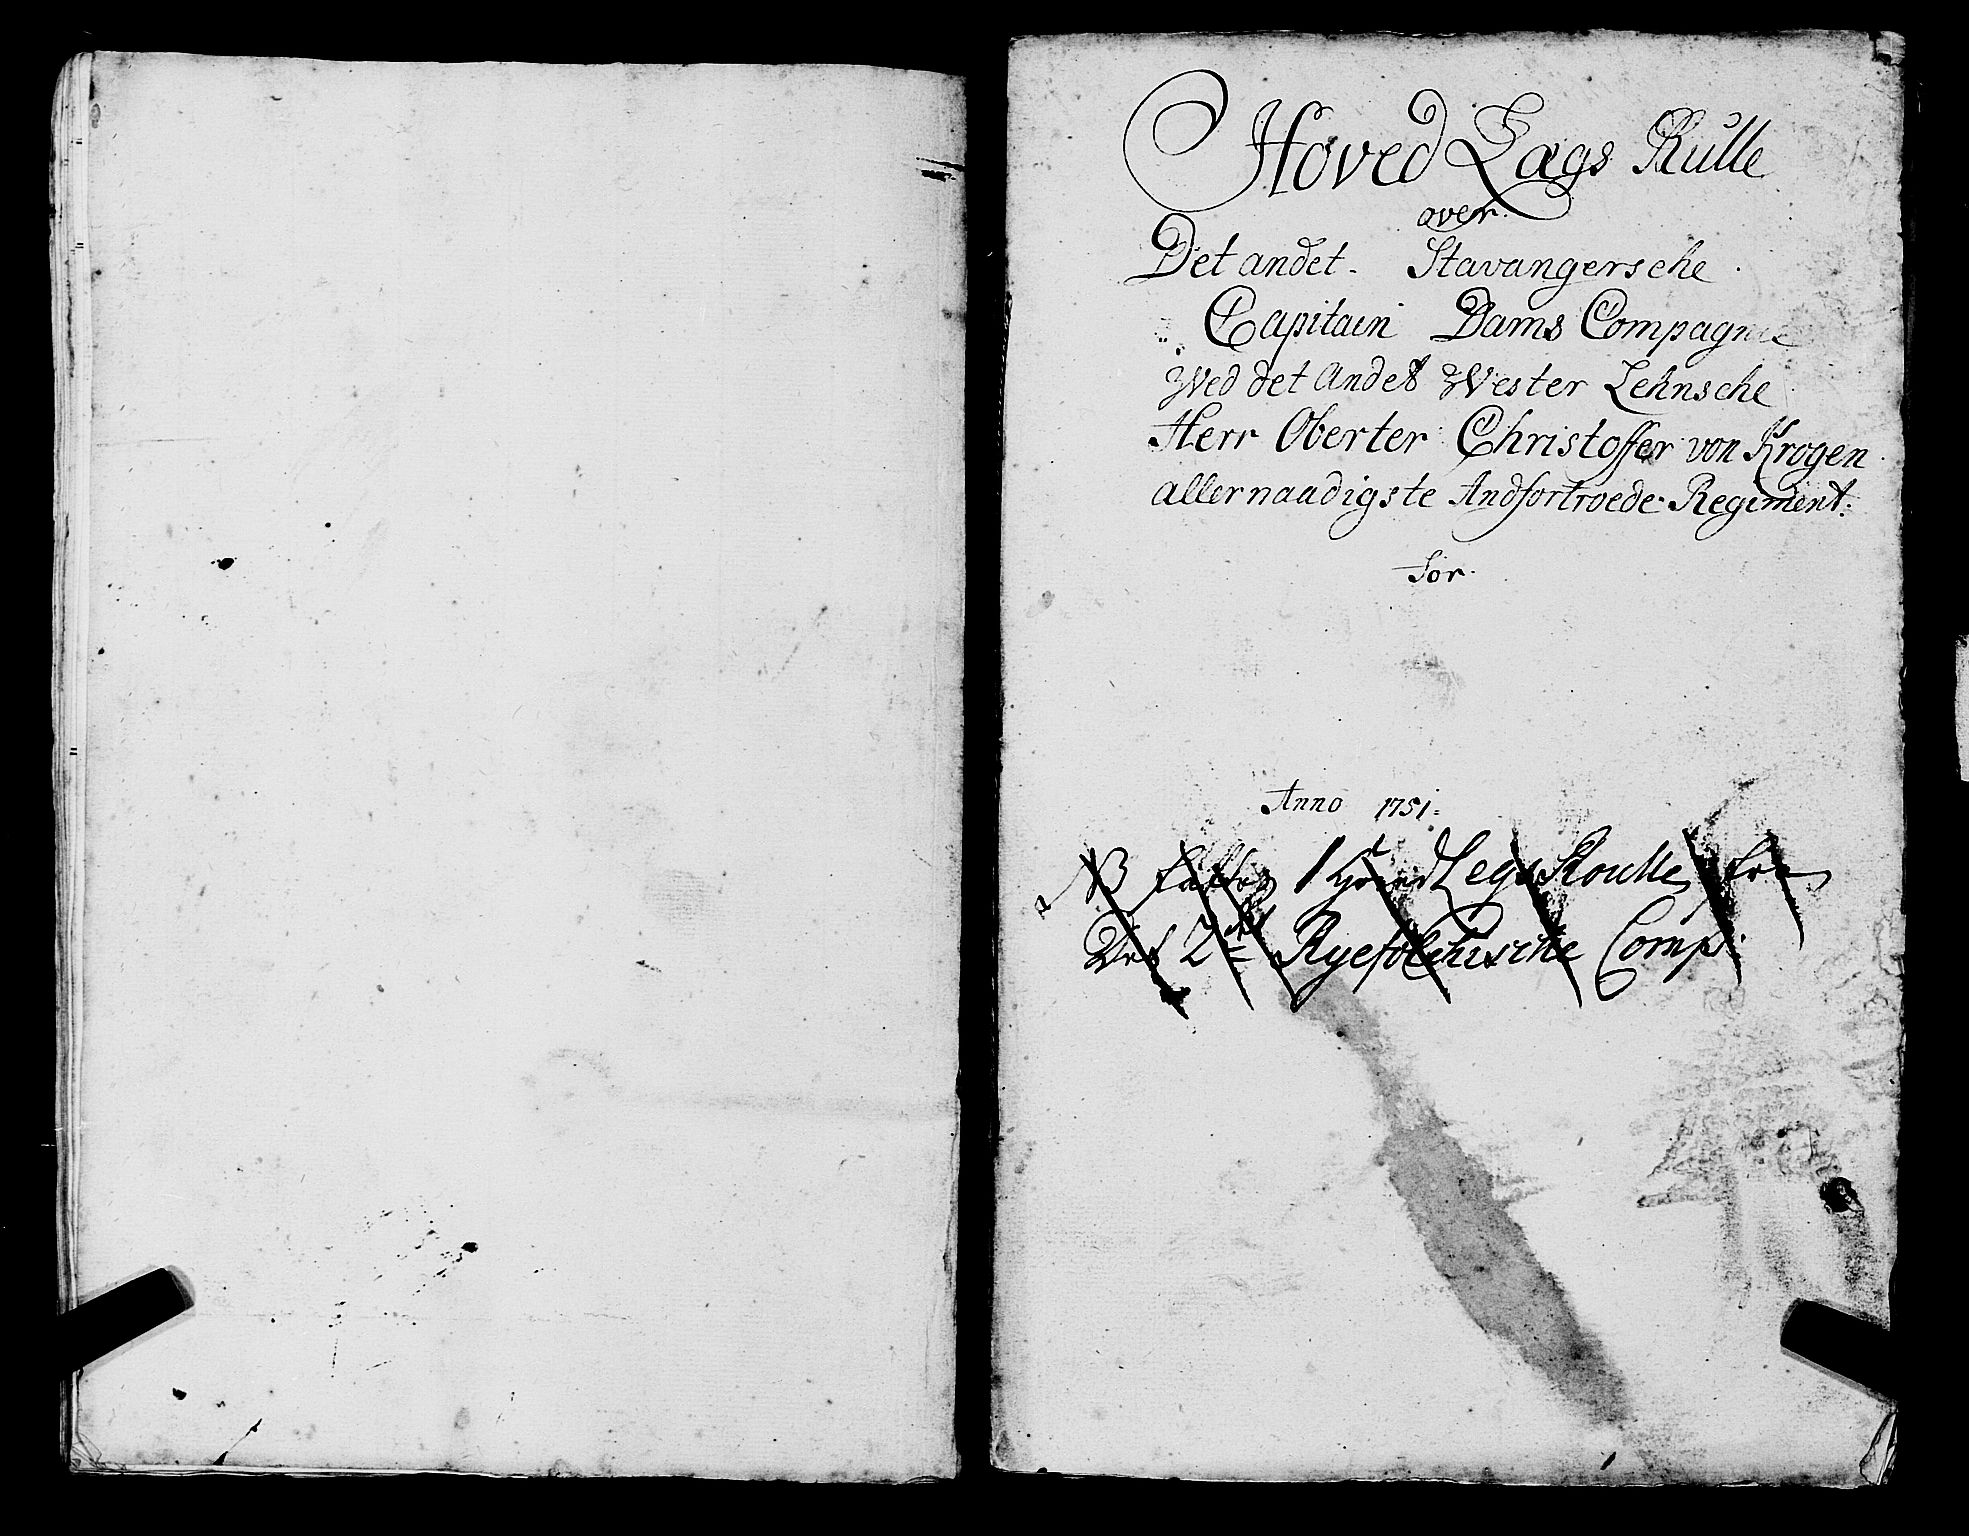 Hoved Lægs Rulle
over.
Det andet. Stavangersche
Capitain Dams Compagnie
Wed det Andet Wester Lehnsche
Herr Oberter Christoffer von Krogen
allernaadigste Andfortroede Regiment:
for.
Anno 1751.
NB fattes 1 Hoved Legs Roulle fra
Det 2det Ryefölchische Comp: